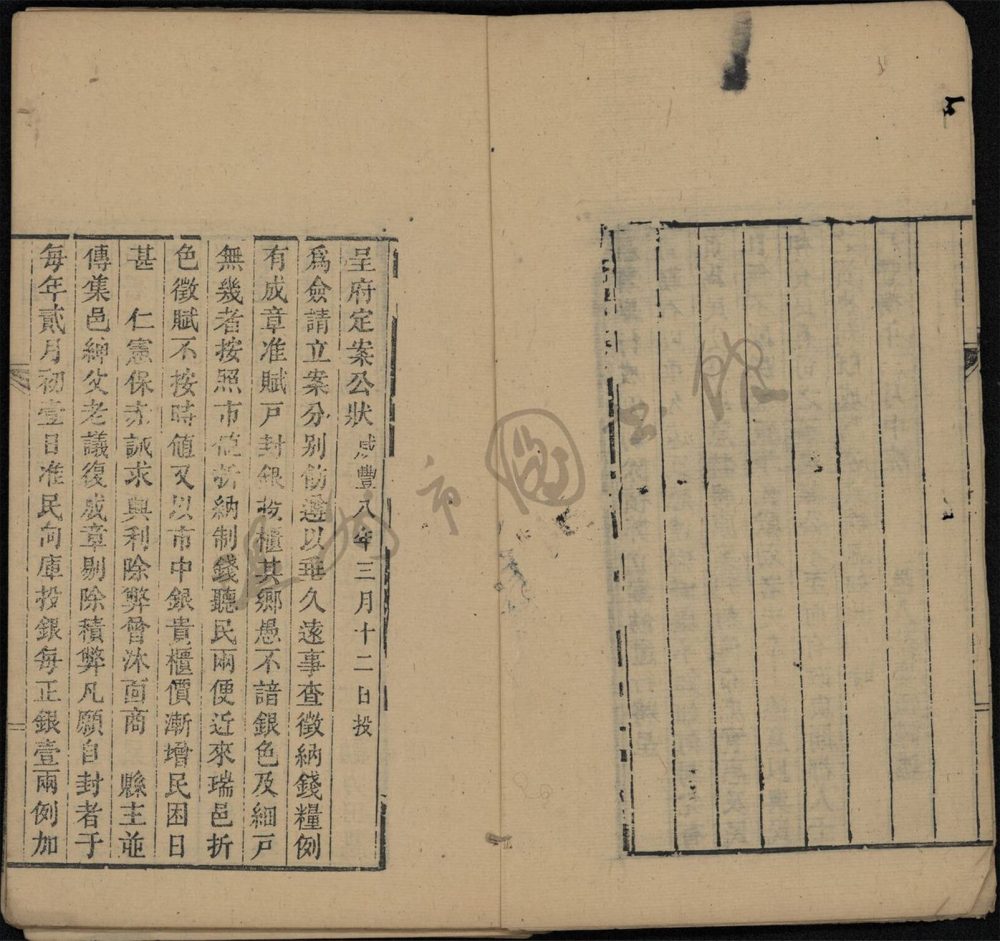 呈府定案公狀咸豐八年三月十二日投
爲僉請立案分別飭遵以垂久遠事查徵納錢糧例
有成章准賦戸封銀投櫃其鄉愚不諳銀色及細戸
無幾者按照市值折納制錢聽民兩便近來瑞邑折
色徵賦不按時值又以市中銀貴櫃價漸增民困日
甚 仁憲保赤誠求興利除弊曾沐面商 縣主並
傳集邑紳父老議復成章剔除積弊凡願自封者于
每年貳月初壹日准民向庫投銀每正銀壹兩例加
市圖